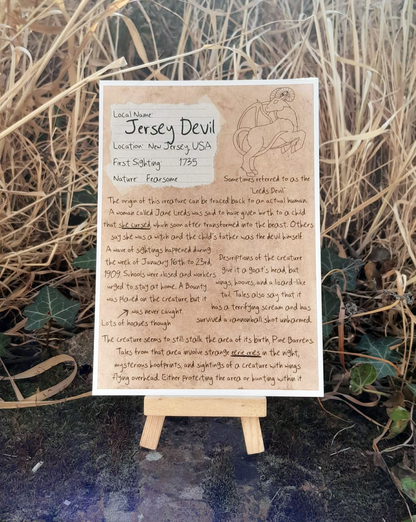 Local Name:
Jersey Devil
Location: New Jersey, USA
First Sighting: 1735
Nature: Fearsome
Sometimes referred to as the
'Leeds Devil'
The origin of this creature can be traced back to an actual human.
A woman called Jane Leeds was said to have given birth to a child
that she cursed which soon after transformed into the beast. Others
say she was a witch and the child's father was the devil himself.
A wave of sightings happened during
the week of January 16th to 23rd,
1909. Schools were closed and workers
urged to stay at home. A Bounty
was placed on the creature, but it
was never caught.
Lots of hoaxes though
Descriptions of the creature
give it a goat's head, bat
wings, hooves, and a lizard-like
tail. Tales also say that it
has a terrifying scream and has
survived a cannonball shot unharmed.
The creature seems to still stalk the area of its birth, Pine Barrens.
Tales from that area involve strange eerie cries in the night,
mysterious hoofprints, and sightings of a creature with wings
flying overhead. Either protecting the area or hunting within it.